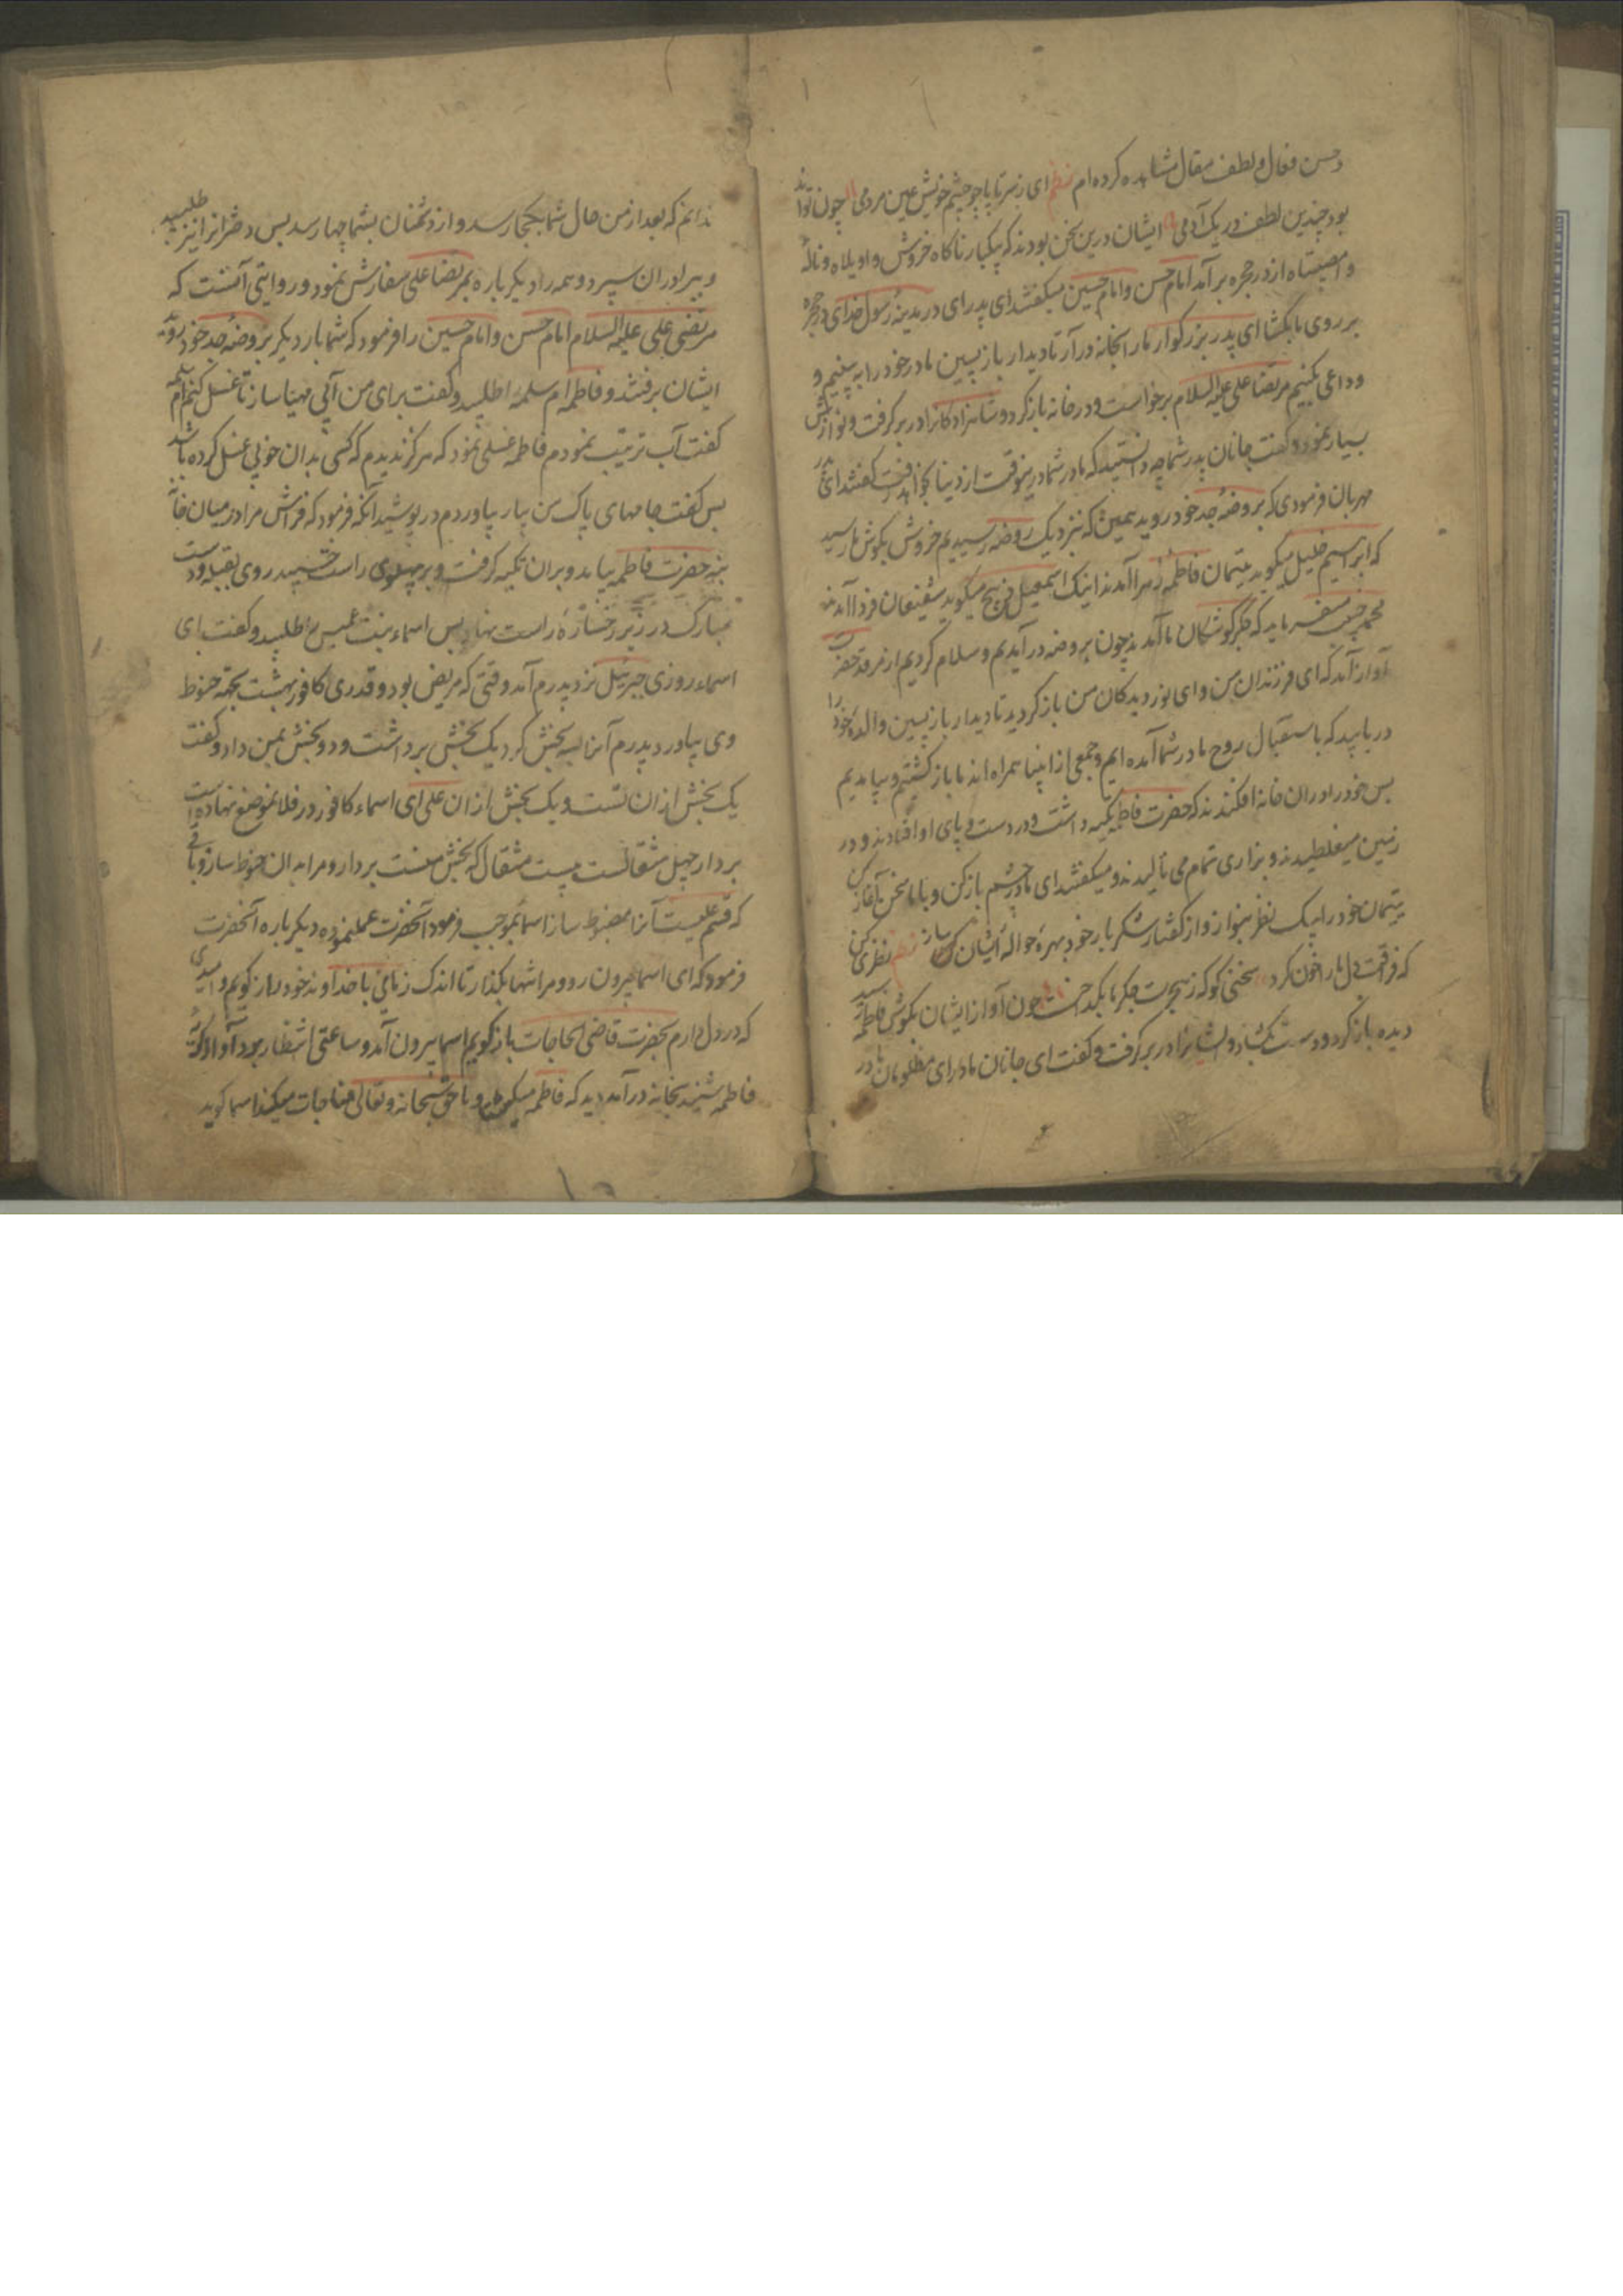 و حسن فعال و لطف مقال مشاهده کرده ام نظم ای ز سر تا پا چو چشم خویش عین مردمی چون تواند
بود چندین لطف در یک آدمی ایشان درین سخن بودند که یکبار ناکاه خروش واویلاه و نالهٔ
وامصیبتاه از در حجره برآمد امام حسن و امام حسین میکفتند ای پدر ای در مدینهٔ رسول خدای در حجره
بر روی ما بکشا ای پدر بزرکوار ما را بخانه درآر تا دیدار بازپسین مادر خود را به بینیم و
وداعی بکنیم مرتضا علی علیه السلام برخواست و در خانه باز کرد و شاهزادکانرا در بر کرفت و نوازش
بسیار نمود و کفت جانان پدر شما چه دانستید که مادر شما درینوقت از دنیا بخواهد رفت کفتند ای پدر
مهربان فرمودی که بروضهٔ جد خود روید همین که نزدیک روضه رسیدیم خروش بکوش ما رسید
که ابرهیم خلیل میکوید یتیمان فاطمهٔ زهرا آمدند اینک اسمعیل ذبیح میکوید شفیعان فردا آمدند
محمد حبیب میفرماید که جکرکوشکان ما آمدند چون بروضه درآمدیم و سلام کردیم از مرقد حضرت
آواز آمد که ای فرزندان من و ای نور دیدکان من باز کردید تا دیدار بازپسین والدهٔ خود را
دریابید که باستقبال روح مادر شما آمده ایم و جمعی از انبیا همراه اند ما باز کشتیم و بیامدیم
پس خود را در ان خانه افکندند که حضرت فاطمه تکیه داشت و در دست و پای او افتادند و در
زمین میغلطیدند و بزاری تمام می نالیدند و میکفتند ای مادر چشم باز کن و با ما سخن آغاز کن
یتیمان خود را بیک نظر بنواز و از کفتار شکربار خود بهرهٔ حوالهٔ ایشان ساز نظم نظری کن
که فراقت دل ما را خون کرد سخنی کو که ز هجرت جکر ما بکداخت چون آواز ایشان بکوش فاطمه رسید
دیده باز کرد و دست بکشاد و ایشانرا در بر کرفت و کفت ای جانان مادر ای مظلومان مادر
ندانم که بعد از من حال شما بکجا رسد و از دشمنان بشما چها رسد پس دختر انرا نیز طلبید
و ببرادران سپرد و همه را دیکر باره بمرتضا علی سفارش نمود و روایتی آنست که
مرتضی علی علیه السلام امام حسن و امام حسین را فرمود که شما بار دیکر بروضهٔ جد خود روید
ایشان برفتند و فاطمه ام سلمه را طلبید و کفت برای من آبی مهیا ساز تا غسل کنم ام سلمه
کفت آب ترتیب نمودم فاطمه غسلی نمود که هرکز ندیدم که کسی بدان خوبی غسل کرده باشد
پس کفت جامهای پاک من بیار بیاوردم درپوشید آنکه فرمود که فراش مرا در میان خانه
بنه حضرت فاطمه بیامد و بران تکیه کرفت و بر پهلوی راست خسپید روی بقبله و دست
مبارک در زیر رخسارهٔ راست نهاد پس اسماء بنت عمیس را طلبید و کفت ای
اسماء روزی جبرئیل نزد پدرم آمد وقتی که مریض بود و قدری کافور بهشت بجهة حنوط
وی بیاورد پدرم آنرا سه بخش کرد یک بخش برداشت و دو بخش بمن داد و کفت
یک بخش ازان تست و یک بخش ازان علی ای اسماء کافور در فلان موضع نهاده است
بردار چهل مثقالست بیست مثقال که بخش منست بردار و مرا بدان حنوط ساز و باقی
که قسم علیست آنرا مضبوط ساز اسما بموجب فرمود آنحضرت عمل نموده دیکر باره آنحضرت
فرمود که ای اسما بیرون رو و مرا تنها بکذار تا اندک زمانی با خداوند خود راز کویم و امیدی
که در دل دارم بحضرت قاضی الحاجات باز کویم اسما بیرون آمد و ساعتی انتظار برد آواز کریهٔ
فاطمه شنید بخانه درآمد دید که فاطمه میکرید و با حق سبحانه و تعالی مناجات میکند اسما کوید